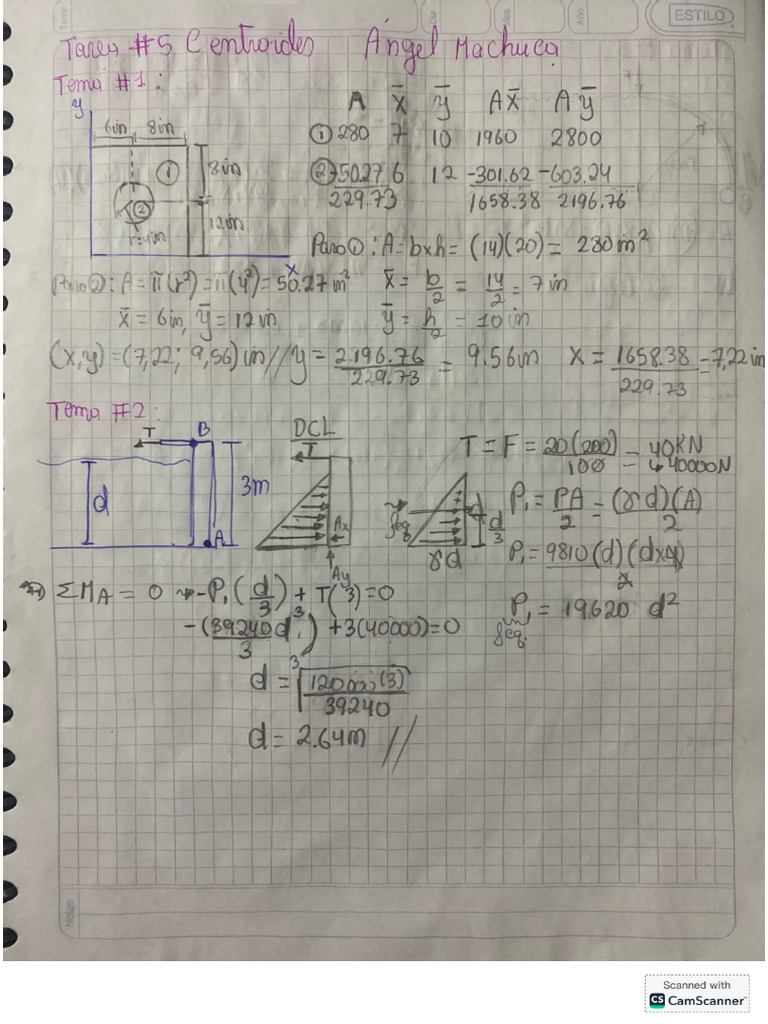 Tema
Día
Mes
Año
ESTILO
Tarea #5 Centroides Ángel Machuca
Tema #1:
y
6in 8in
8in
12in
r=4in
①
②
A x̄ ȳ Ax̄ Aȳ
① 280 7 10 1960 2800
② -50.27 6 12 -301.62 -603.24
229.73 1658.38 2196.76
Para ①: A = bxh = (14)(20) = 280 in²
Para ②: A = π(r²) = π(4²) = 50.27 in² x̄ = b/2 = 14/2 = 7in
x̄ = 6in, ȳ = 12in ȳ = h/2 = 10in
(x,y) = (7,22; 9,56) in // y = 2196.76/229.73 = 9.56in x = 1658.38/229.73 = 7,22 in
Tema #2:
T B
d
3m
A
DCL
T
Ax
Ay
feq
d/3
γd
T = F = 20(200)/100 = 40KN
↳ 40000N
P₁ = PA/2 = (γd)(A)/2
P₁ = 9810(d)(dx4)/2
P₁ = 19620 d²
feq.
ΣMA = 0 → -P₁(d/3) + T(3) = 0
-(39240d³/3) + 3(40000) = 0
d = ³√120000(3)/39240
d = 2.64m //
Notas
Scanned with
CS CamScanner